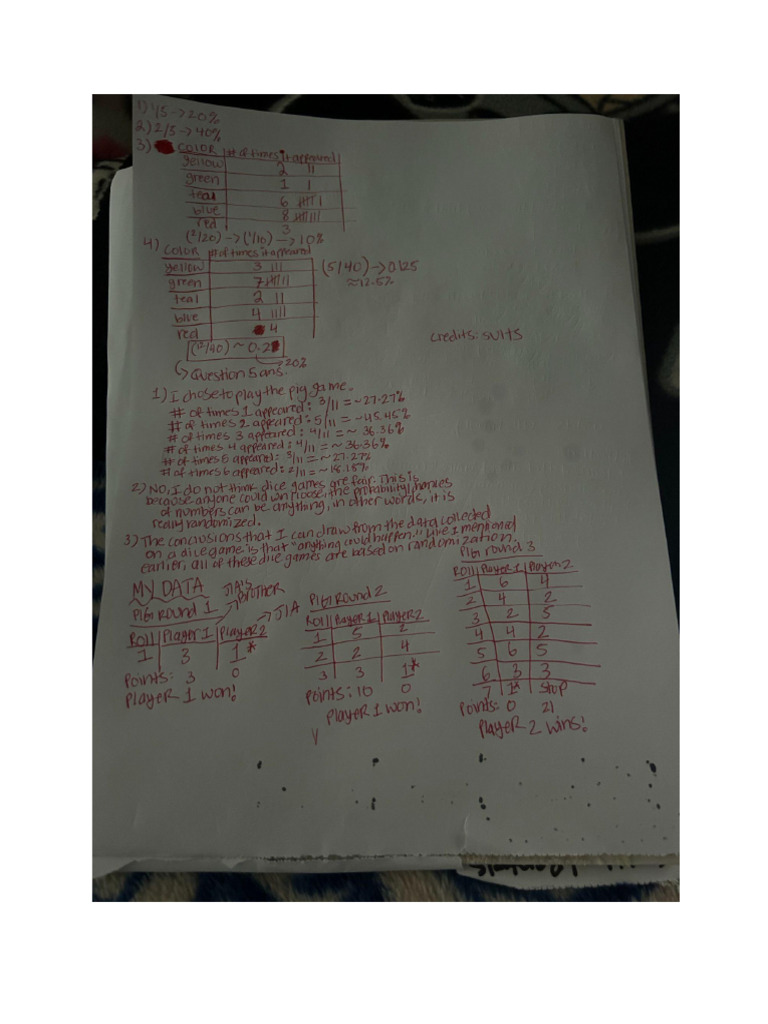 1) 1/5 -> 20%
2) 2/5 -> 40%
3) COLOR # of times it appeared
yellow 2 ||
green 1 |
teal 6 |||| |
blue 8 |||| |||
red 3
(2/20) -> (1/10) -> 10%
4) COLOR # of times it appeared
yellow 3 |||
green 7 |||| ||
teal 2 ||
blue 4 ||||
red 4
(5/40) -> 0.125
≈12.5%
(2/40) ~ 0.2
20%
Question 5 ans.
credits: SUITS
1) I chose to play the pig game.
# of times 1 appeared: 3/11 = ~27.27%
# of times 2 appeared: 5/11 = ~45.45%
# of times 3 appeared: 4/11 = ~ 36.36%
# of times 4 appeared: 4/11 = ~ 36.36%
# of times 5 appeared: 3/11 = ~27.27%
# of times 6 appeared: 2/11 = ~18.18%
2) No, I do not think dice games are fear. This is
because anyone could win/loose, the probability/chances
of numbers can be anything, in other words, it is
really randomized.
3) The conclusions that I can draw from the data collected
on a dice game is that "anything could happen." Like I mentioned
earlier, all of these dice games are based on randomization.
MY DATA
JIA'S BROTHER
PIG ROUND 1
JIA
Roll Player 1 Player 2
1 3 1*
Points: 3 0
Player 1 won!
PIG Round 2
Roll Player 1 Player 2
1 5 2
2 2 4
3 3 1*
Points: 10 0
Player 1 won!
PIG round 3
Roll Player 1 Player 2
1 6 4
2 4 2
3 2 5
4 4 2
5 6 5
6 3 3
7 1* Stop
Points: 0 21
Player 2 wins!